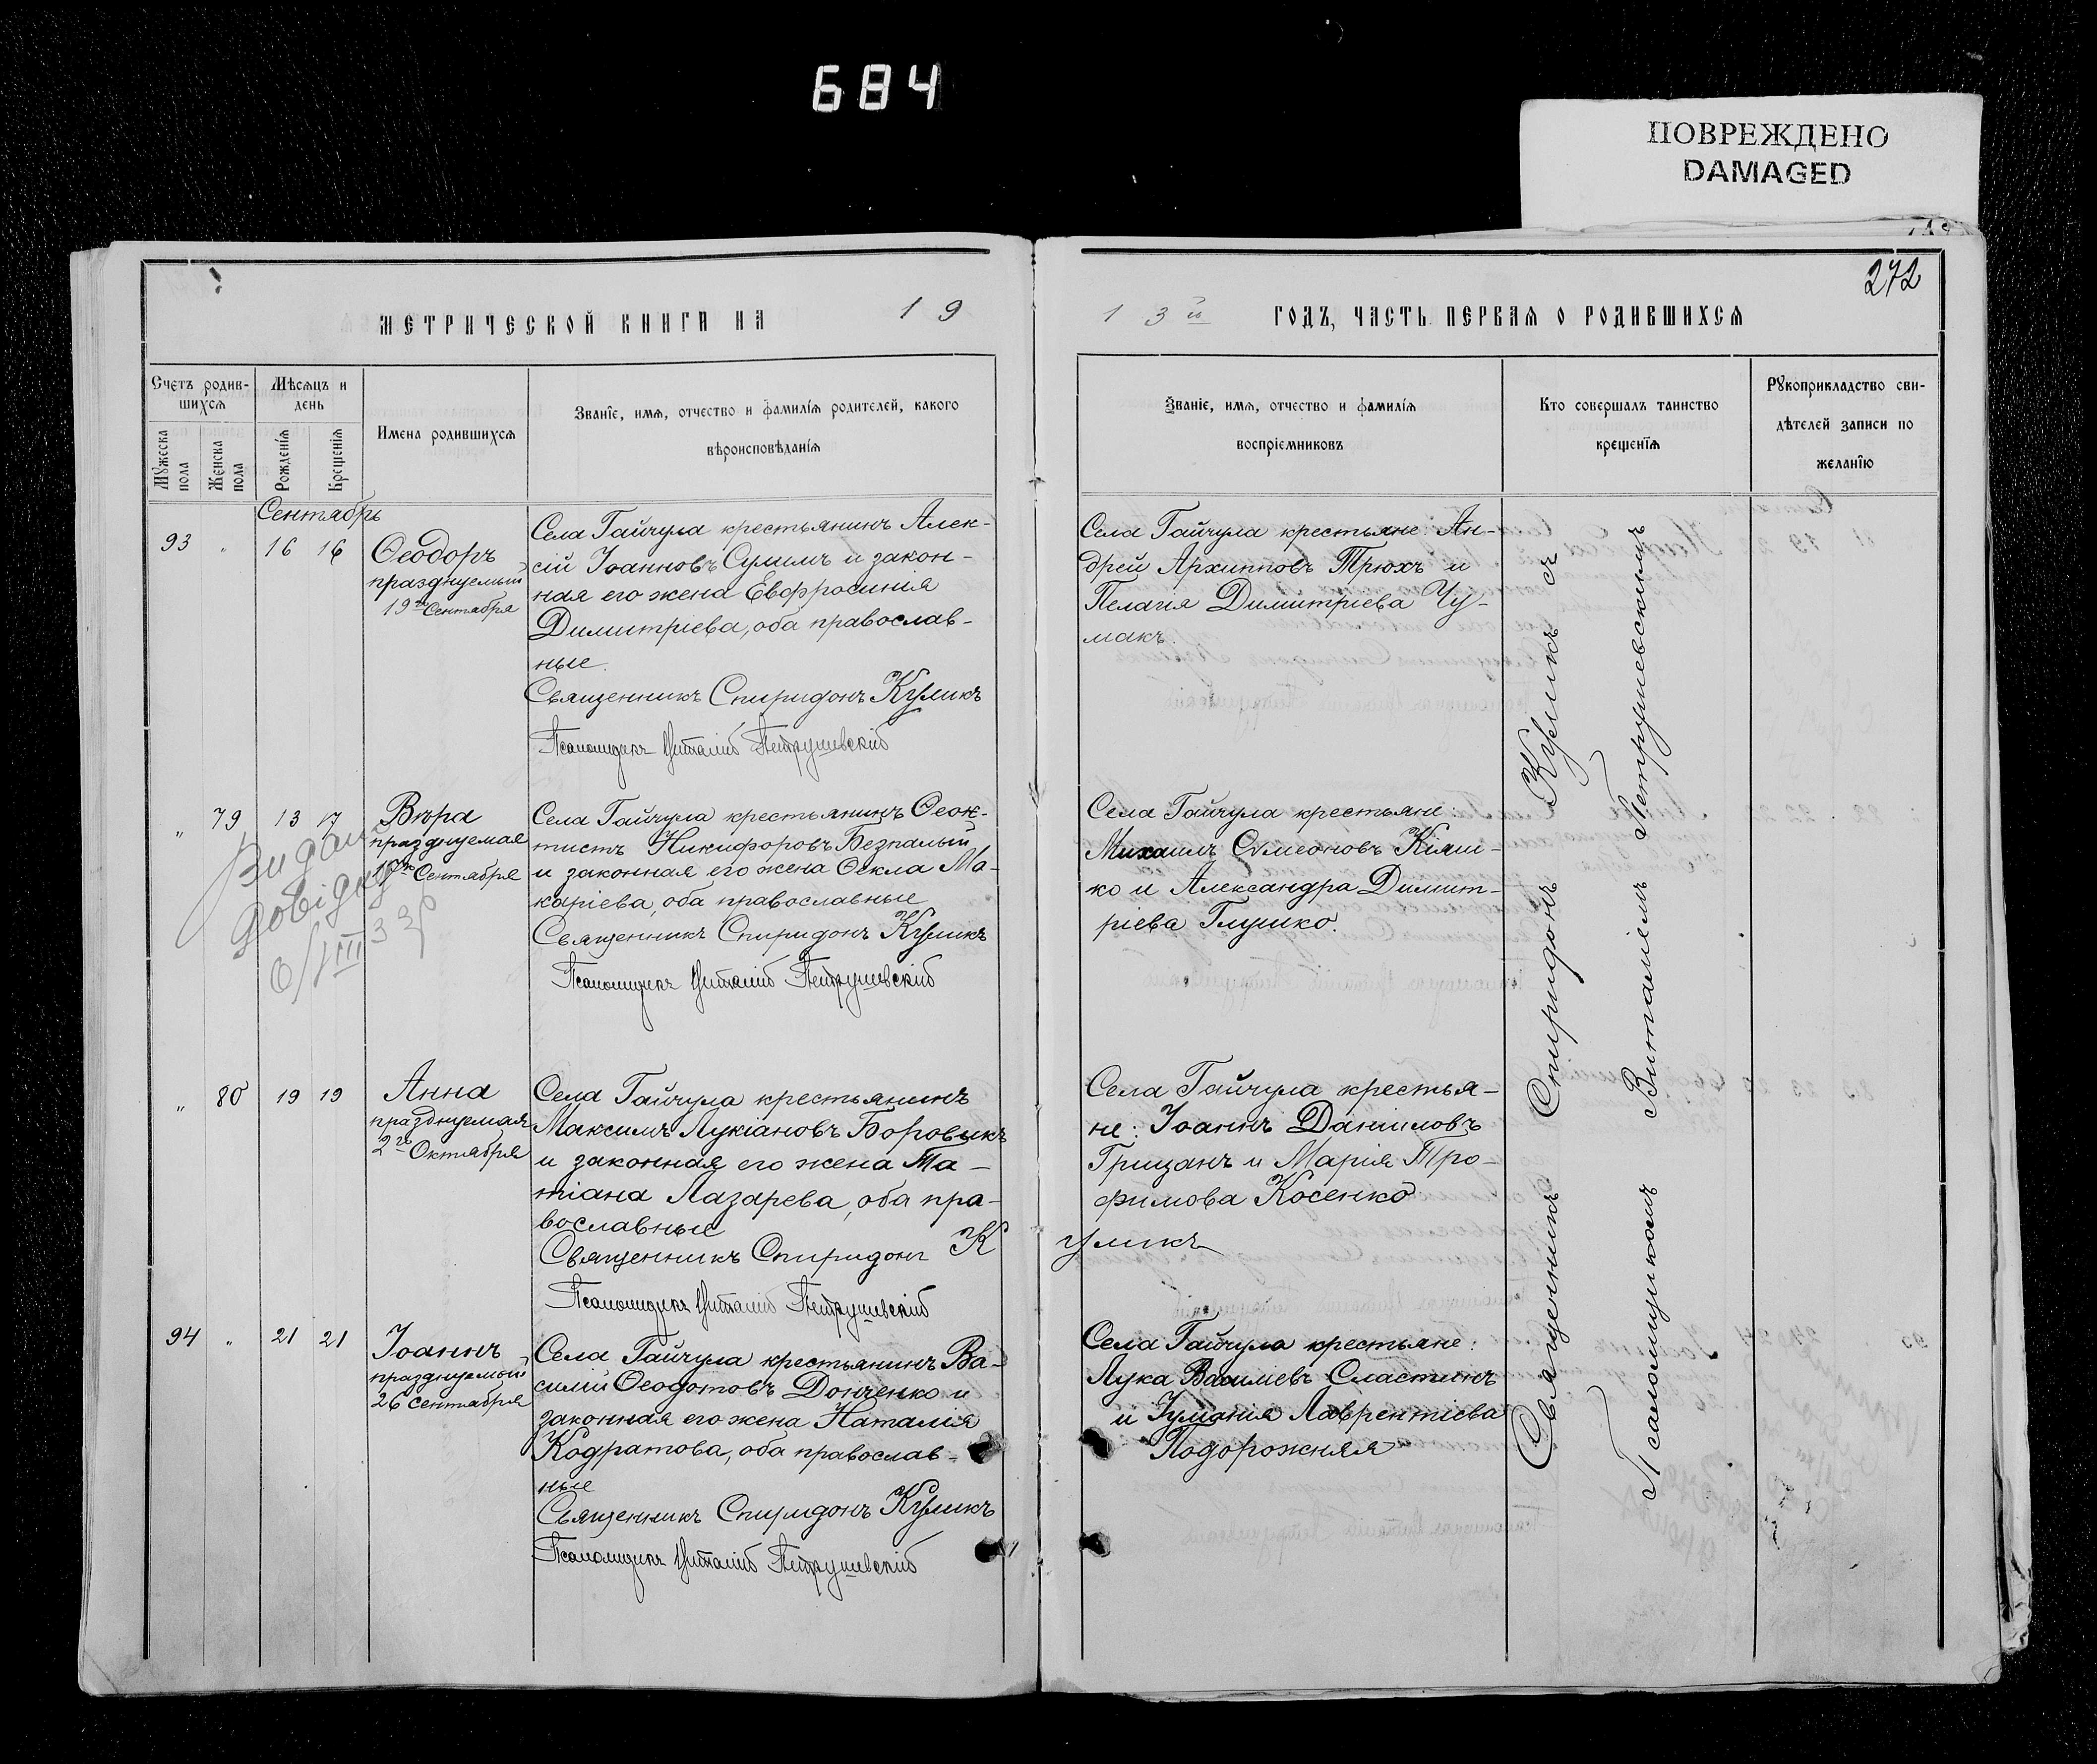 684
ПОВРЕЖДЕНО
DAMAGED
272
МЕТРИЧЕСКОЙ КНИГИ НА 19
13й ГОДЪ, ЧАСТЬ ПЕРВАЯ О РОДИВШИХСЯ
Счетъ родив-
шихся
Мужеска пола
Женска пола
Мѣсяцъ и
день
Рожденія
Крещенія
Имена родившихся
Званіе, имя, отчество и фамилія родителей, какого
вѣроисповѣданія
Званіе, имя, отчество и фамилія
воспріемниковъ
Кто совершалъ таинство
крещенія
Рукоприкладство сви-
дѣтелей записи по
желанію
Сентябрь
93 " 16 16
Ѳеодоръ
празднуемый
19го Сентября
Села Гайчула крестьянинъ Алек-
сій Іоанновъ Сулимъ и закон-
ная его жена Евфросинія
Димитріева, оба православ-
ные.
Священникъ Спиридонъ Куликъ
Псаломщикъ Виталій Петрушевскій
Села Гайчула крестьяне: Ан-
дрей Архипповъ Трюхъ и
Пелагія Димитріева Чу-
макъ.
" 79 13 17
Вѣра
празднуемая
17го Сентября
Видан
довідку
33р
Села Гайчула крестьянинъ Ѳеок-
тистъ Никифоровъ Безпалый
и законная его жена Ѳекла Ма-
каріева, оба православные
Священникъ Спиридонъ Куликъ
Псаломщикъ Виталій Петрушевскій
Села Гайчула крестьяне:
Михаилъ Сѵмеоновъ Кіяш-
ко и Александра Димит-
ріева Глушко.
" 80 19 19
Анна
празднуемая
2го Октября
Села Гайчула крестьянинъ
Максимъ Лукіановъ Боровикъ
и законная его жена Та-
тіана Лазарева, оба пра-
вославные
Священникъ Спиридонъ К
уликъ
Псаломщикъ Виталій Петрушевскій
Села Гайчула крестья-
не: Іоаннъ Даніиловъ
Грицанъ и Марія Тро-
фимова Косенко
94 " 21 21
Іоаннъ
празднуемый
26 сентября
Села Гайчула крестьянинъ Ва-
силій Ѳеодотовъ Донченко и
законная его жена Наталія
Кодратова, оба православ-
ные
Священникъ Спиридонъ Куликъ
Псаломщикъ Виталій Петрушевскій
Села Гайчула крестьяне:
Лука Василіевъ Сластинъ
и Іуліанія Лаврентіева
Подорожняя
Священникъ Спиридонъ Куликъ съ
Псаломщикомъ Виталіемъ Петрушевскимъ